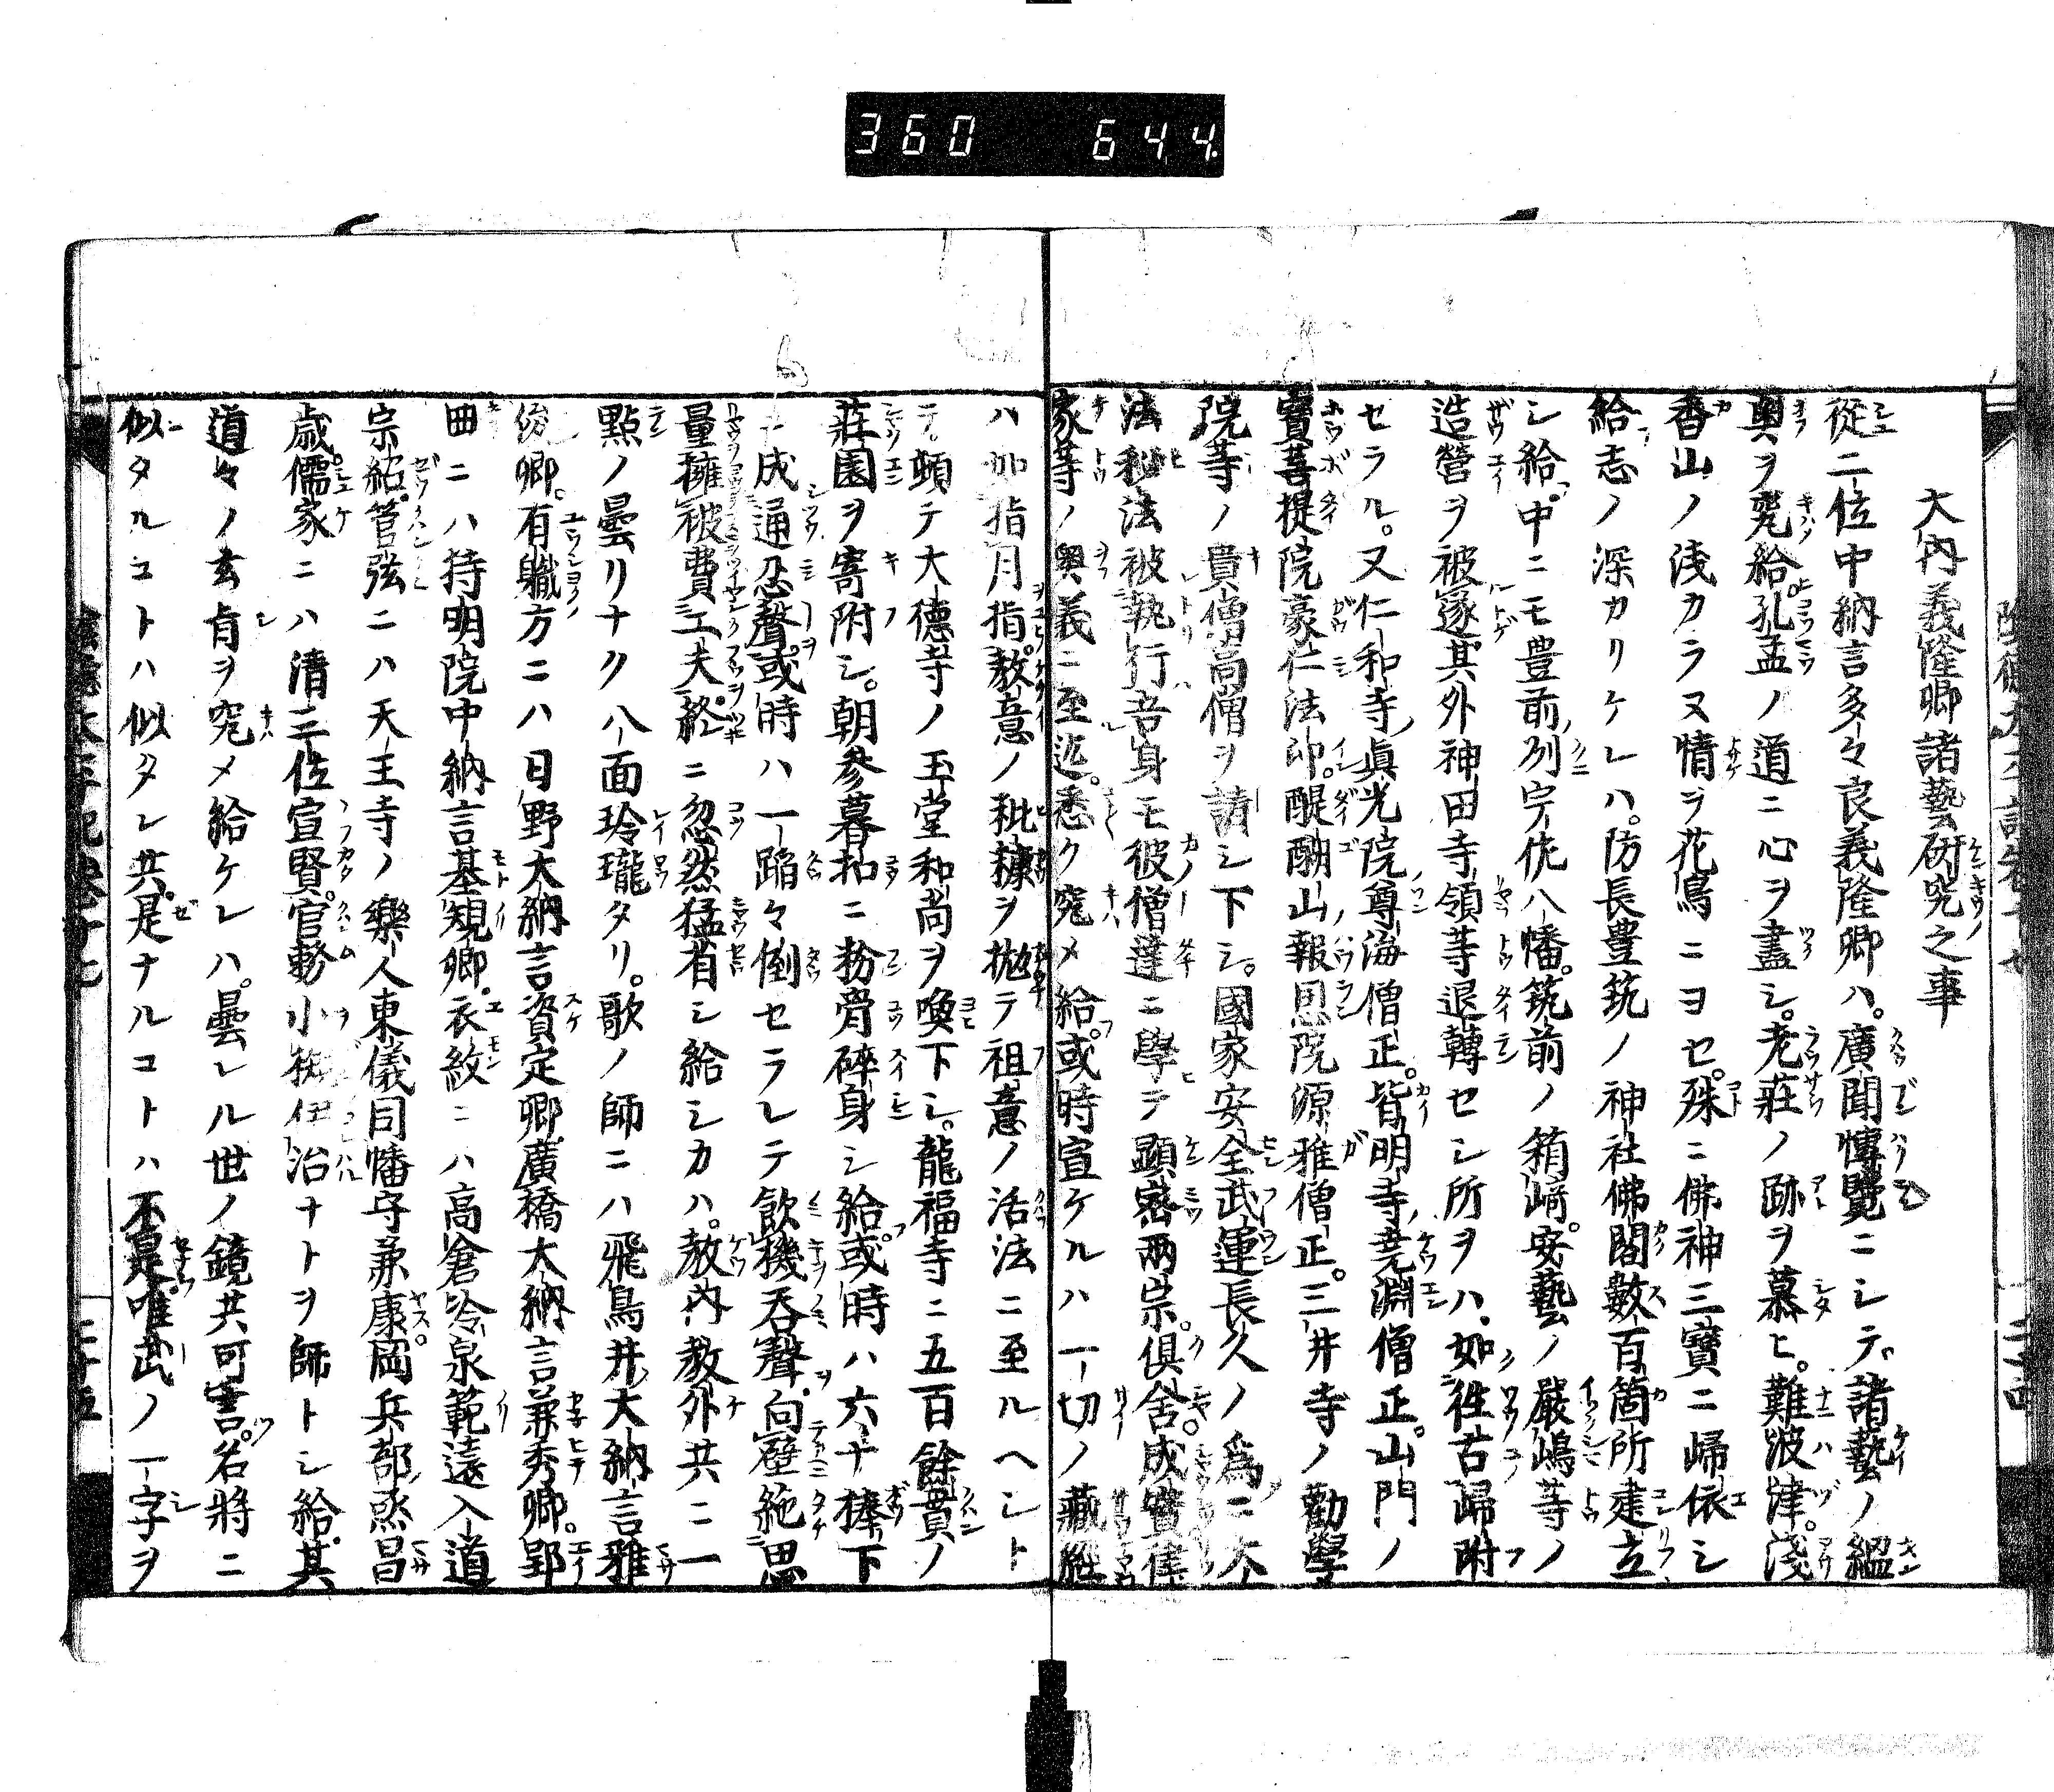 360 644
大內義隆卿諸藝硏究之事
從二位中納言多々良義隆卿ハ。廣聞博覽ニシテ。諸藝ノ縕
奥ヲ究給。孔孟ノ道ニ心ヲ盡シ。老莊ノ跡ヲ慕ヒ。難波津。淺
香山ノ浅カラヌ情ヲ花鳥ニヨセ。殊ニ佛神三寶ニ歸依シ
給志ノ深カリケレハ。防長豊筑ノ神社佛閣數百箇所建立
シ給。中ニモ豊前ノ列宇佐八幡。筑前ノ箱﨑。安藝ノ嚴嶋等ノ
造營ヲ被遂。其外神田寺領等退轉セシ所ヲハ。如徃古歸附
セラル。又仁和寺眞光院尊海僧正。皆明寺堯淵僧正。山門ノ
寶菩提院豪仁法印。醍醐山報恩院源雅僧正。三井寺ノ勸學
院等ノ貴僧高僧ヲ請シ下シ。國家安全武運長久ノ爲ニ大
法秘法被執行吾身モ彼僧達ニ學テ顯密兩宗。俱舍。成實律
家等ノ奥義ニ至迄。悉ク究メ給。或時宣ケルハ一切ノ藏經
ハ如指月指。敎意ノ秕糠ヲ拋テ祖意ノ活法ニ至ルヘシト
テ。頓テ大德寺ノ玉堂和尚ヲ喚下シ。龍福寺ニ五百餘貫ノ
莊園ヲ寄附シ。朝參暮扣ニ粉骨碎身シ給。或時ハ六十棒下
ニ成通忍聲。或時ハ一踏々倒セラレテ飮機呑聲。向壁絶思
量擁被費工夫。終ニ忽然猛省シ給シカハ。敎內敎外共ニ一
點ノ曇リナク八面玲瓏タリ。歌ノ師ニハ飛鳥井大納言雅
俊卿。有職方ニハ日野大納言資定卿廣橋大納言兼秀卿。郢
曲ニハ持明院中納言基規卿。衣紋ニハ高倉冷泉範遠入道
宗紹。管弦ニハ天王寺ノ樂人東儀因幡守兼康。岡兵部烝昌
歳。儒家ニハ清三位宣賢。官務小槻伊治ナトヲ師トシ給。其
道々ノ玄肯ヲ究メ給ケレハ。曇レル世ノ鏡共可言。名將ニ
似タルコトハ似タレ共。是ナルコトハ不是。唯武ノ一字ヲ